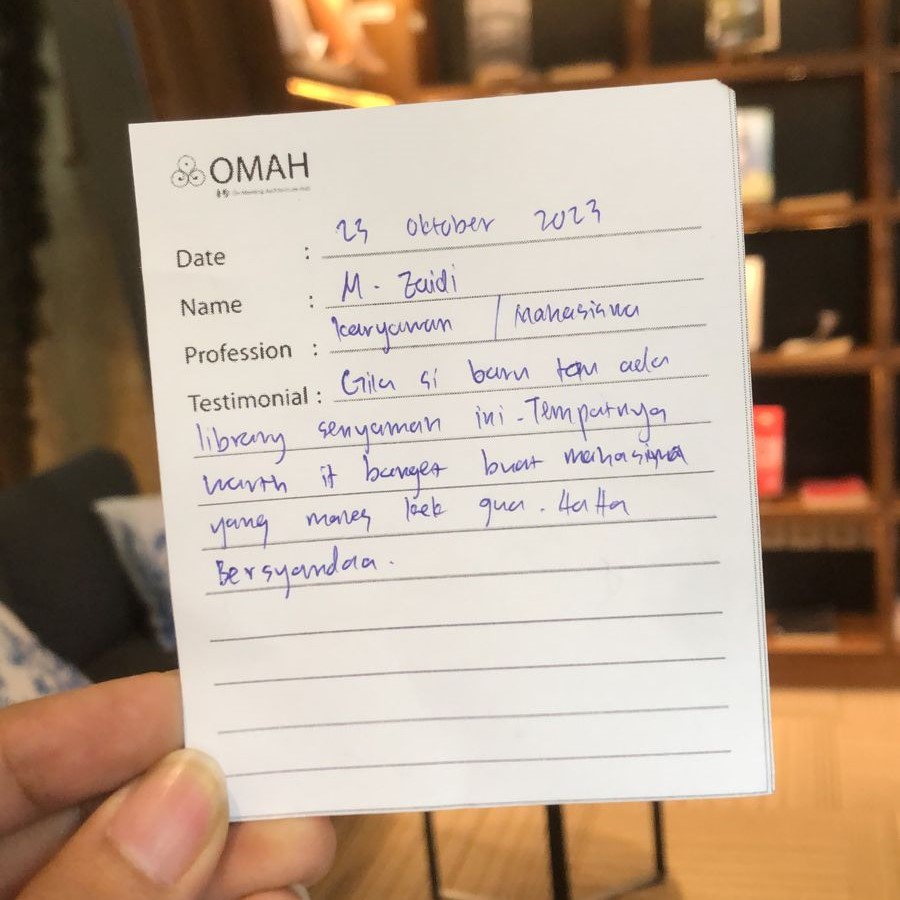 OMAH
Date : 23 Oktober 2023
Name : M. Zaidi
Profession : karyawan / Mahasiswa
Testimonial : Gila si baru tau ada
library senyaman ini. Tempatnya
worth it banget buat mahasiswa
yang males kek gua. HaHa
Bersyandaa.